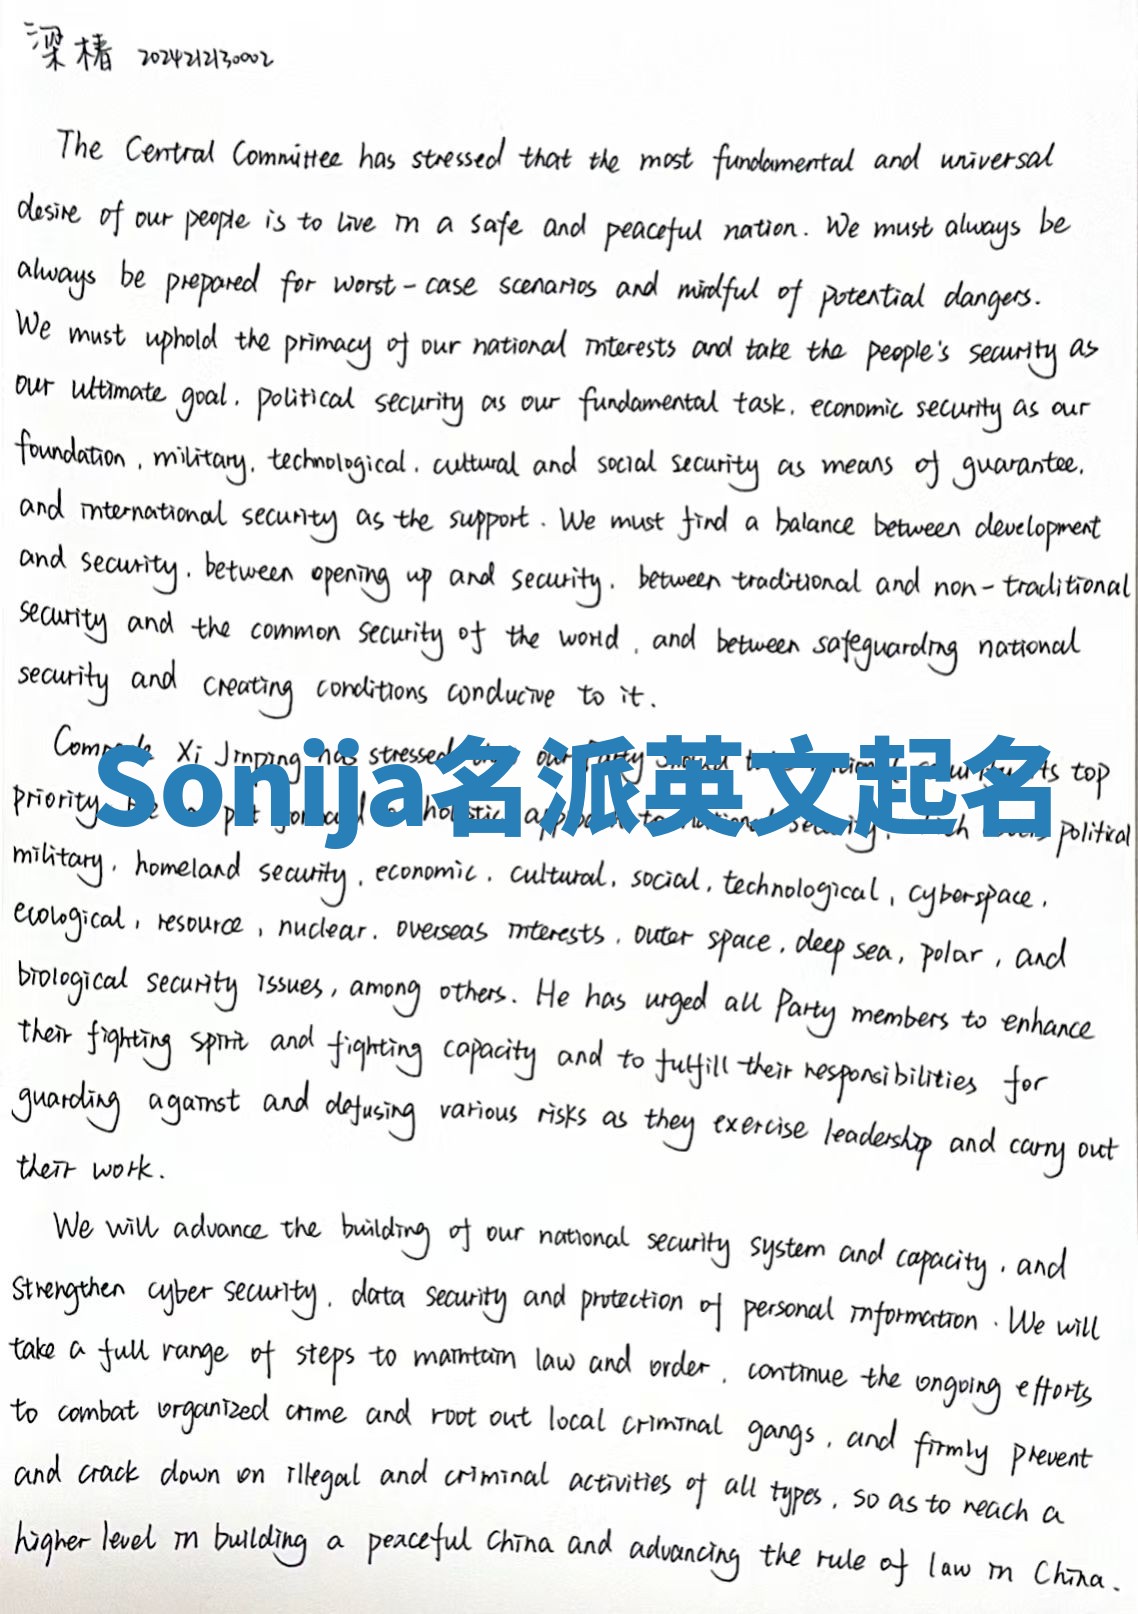 梁椿 2024212130002
The Central Committee has stressed that the most fundamental and universal
desire of our people is to live in a safe and peaceful nation. We must always be
always be prepared for worst-case scenarios and mindful of potential dangers.
We must uphold the primacy of our national interests and take the people's security as
our ultimate goal, political security as our fundamental task, economic security as our
foundation, military, technological, cultural and social security as means of guarantee,
and international security as the support. We must find a balance between development
and security, between opening up and security, between traditional and non-traditional
security and the common security of the world, and between safeguarding national
security and creating conditions conducive to it.
Xi Jinping has stressed our Party top
Sonija名派英文起名
priority political
military, homeland security, economic, cultural, social, technological, cyberspace,
ecological, resource, nuclear, overseas interests, outer space, deep sea, polar, and
biological security issues, among others. He has urged all Party members to enhance
their fighting spirit and fighting capacity and to fulfill their responsibilities for
guarding against and defusing various risks as they exercise leadership and carry out
their work.
We will advance the building of our national security system and capacity, and
strengthen cyber security, data security and protection of personal information. We will
take a full range of steps to maintain law and order, continue the ongoing efforts
to combat organized crime and root out local criminal gangs, and firmly prevent
and crack down on illegal and criminal activities of all types, so as to reach a
higher level in building a peaceful China and advancing the rule of law in China.